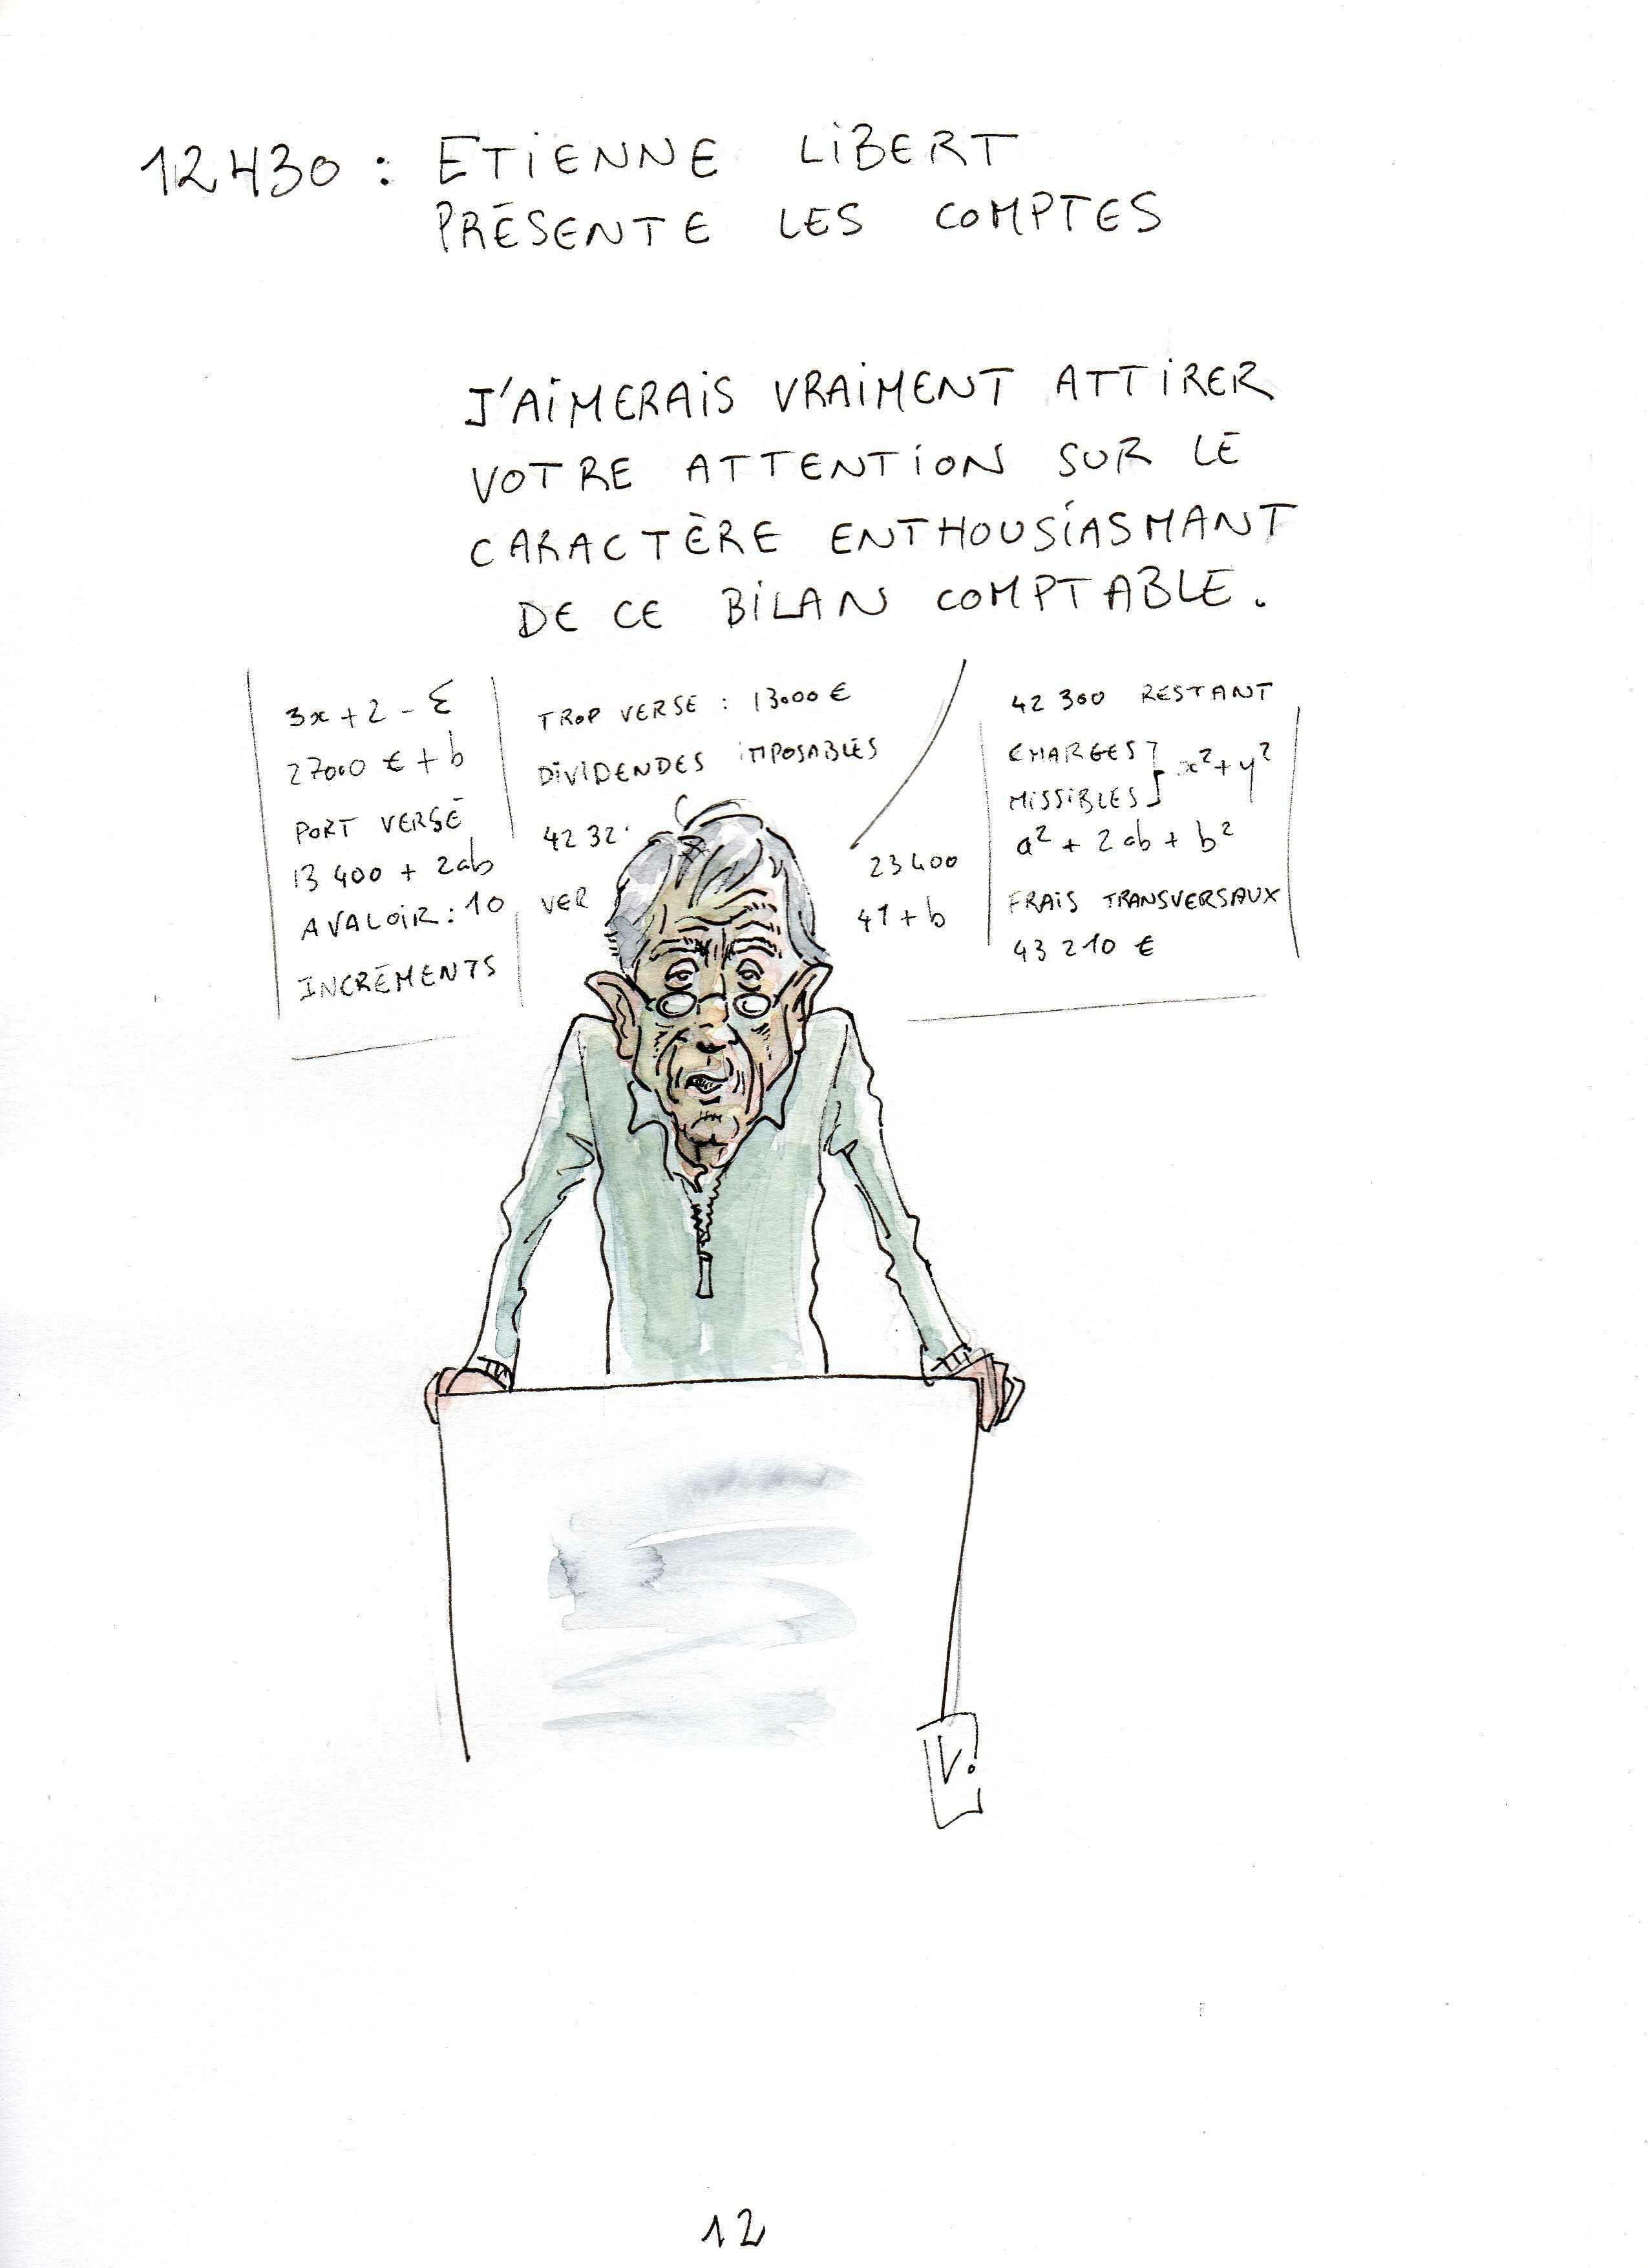 12430 : ETIENNE LIBERT
PRÉSENTE LES COMPTES
J'AIMERAIS VRAIMENT ATTIRER
VOTRE ATTENTION SUR LE
CARACTÈRE ENTHOUSIASMANT
DE CE BILAN COMPTABLE.
3x + 2 - Σ
27000 € + b
PORT VERSÉ
13 400 + 2ab
AVALOIR : 10
INCRÉMENTS
TROP VERSE : 13000 €
DIVIDENDES IMPOSABLES
42 32
VER
23 400
41 + b
42 300 RESTANT
CHARGES
MISSIBLES } x² + y²
a² + 2ab + b²
FRAIS TRANSVERSAUX
43 210 €
V.
12